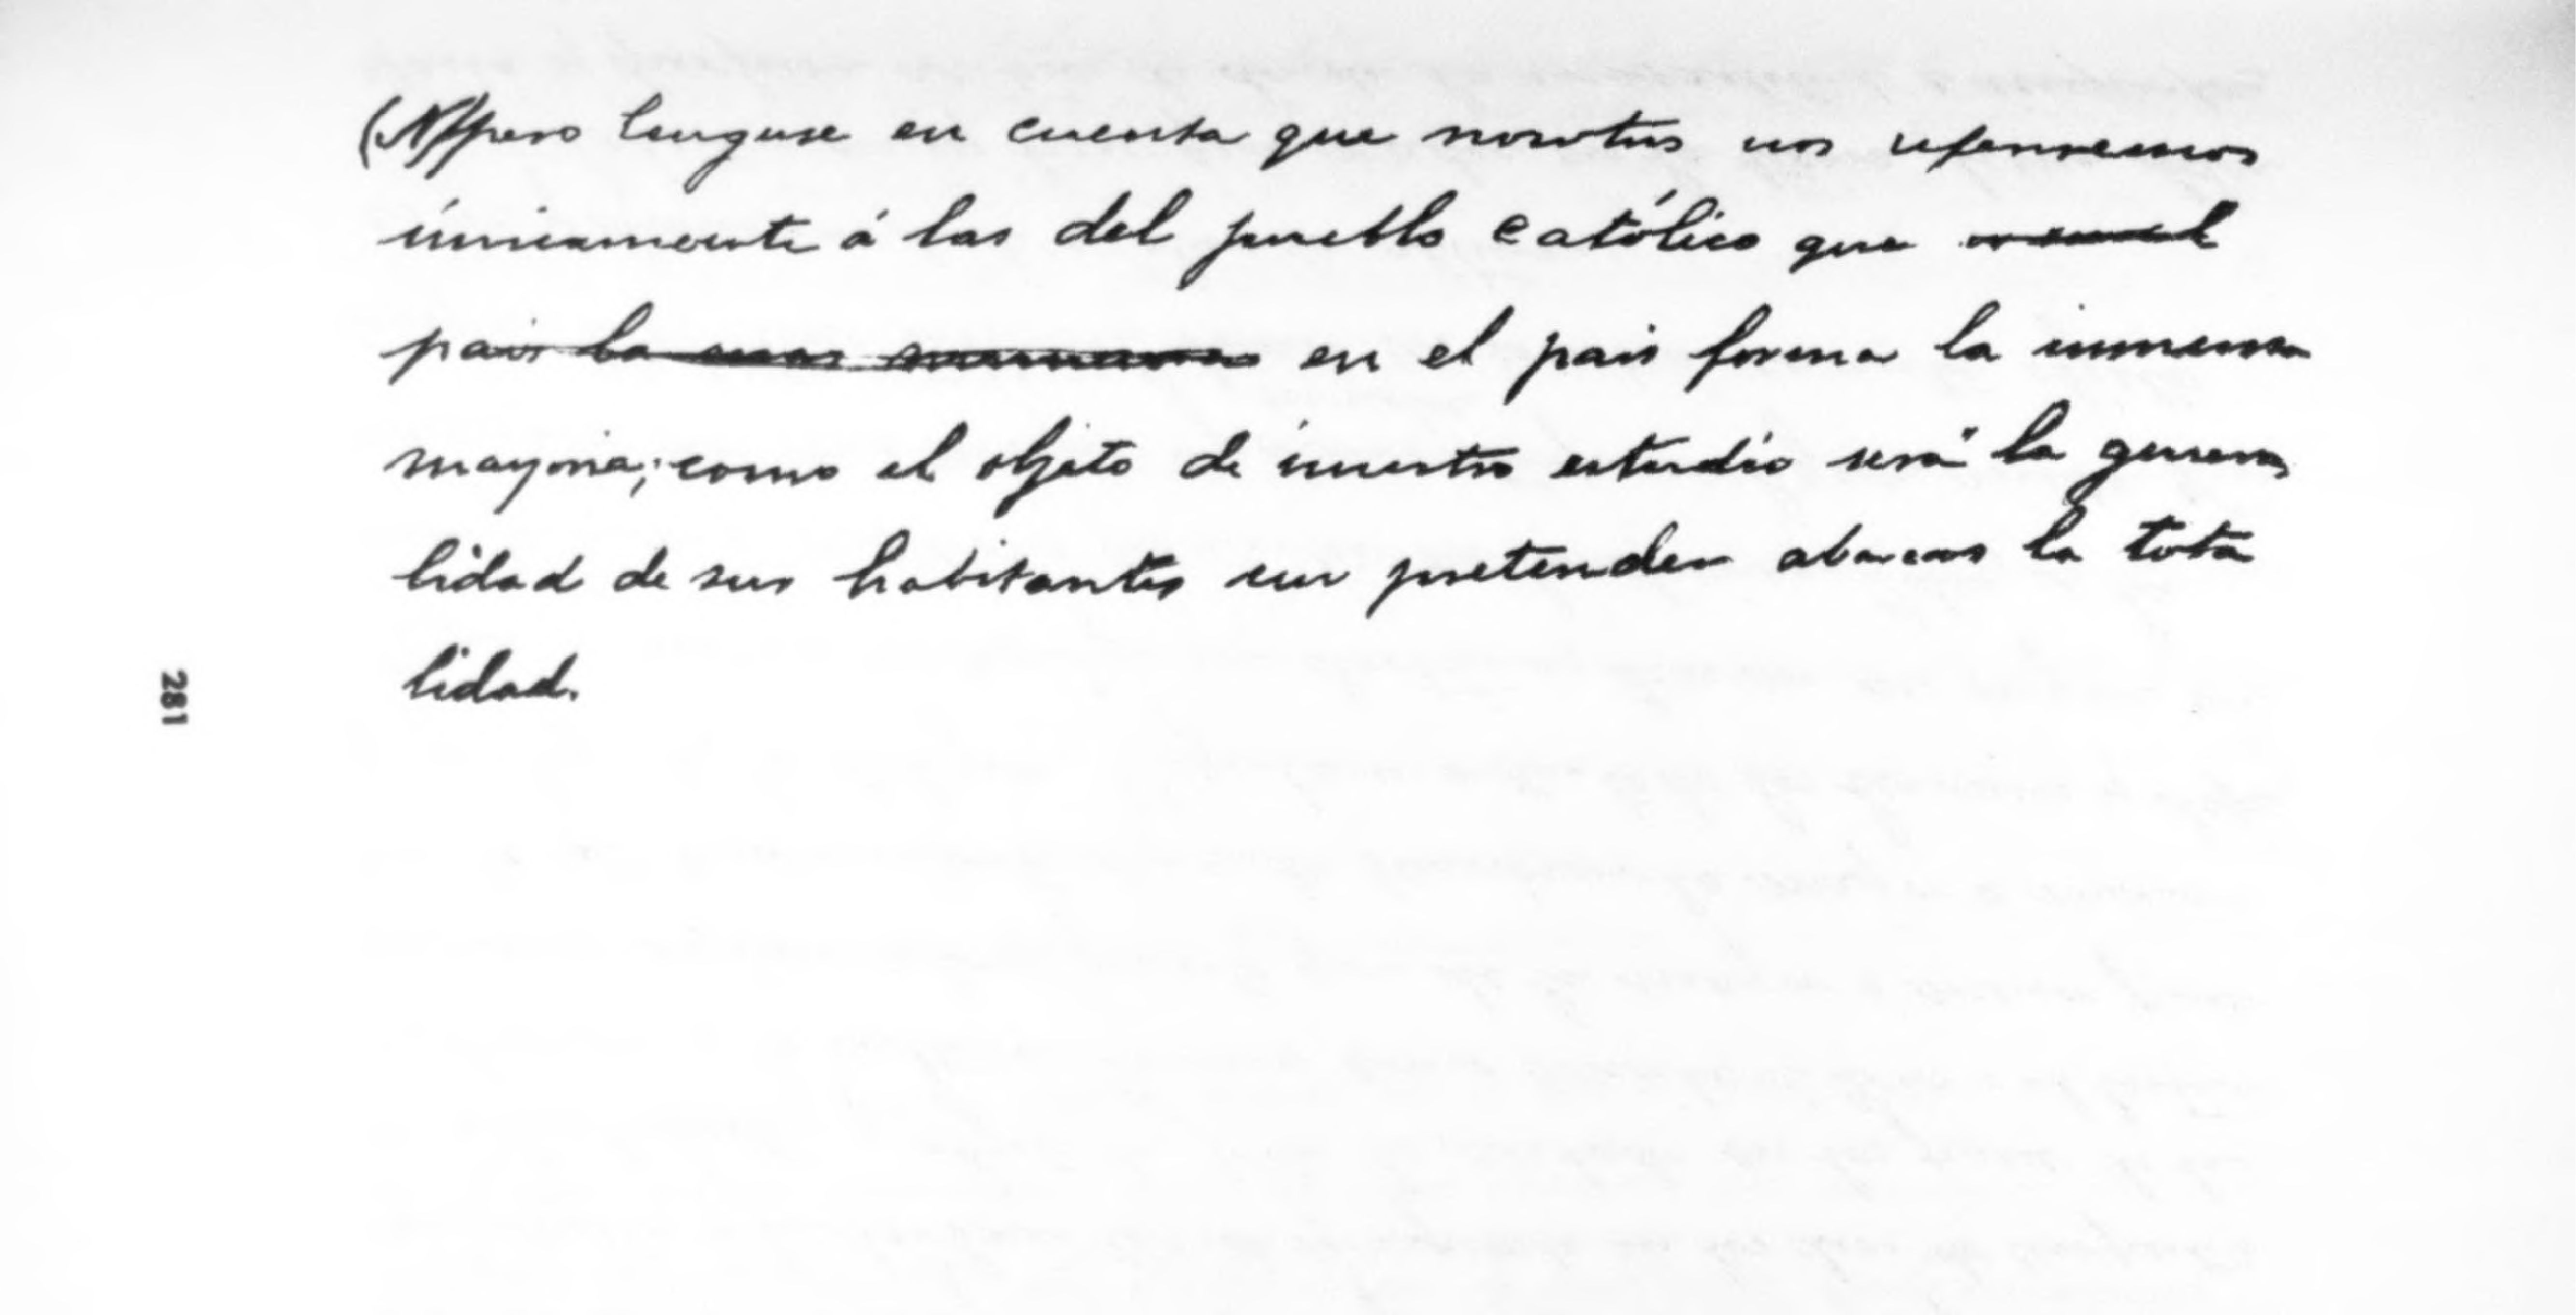 (N) pero tengase en cuenta que nosotros nos referiremos
únicamente á las del pueblo católico que
pais la mas en el pais forma la inmensa
mayoria; como el objeto de nuestro estudio será la genera
lidad de sus habitantes sin pretender abarcar la tota
lidad.
281